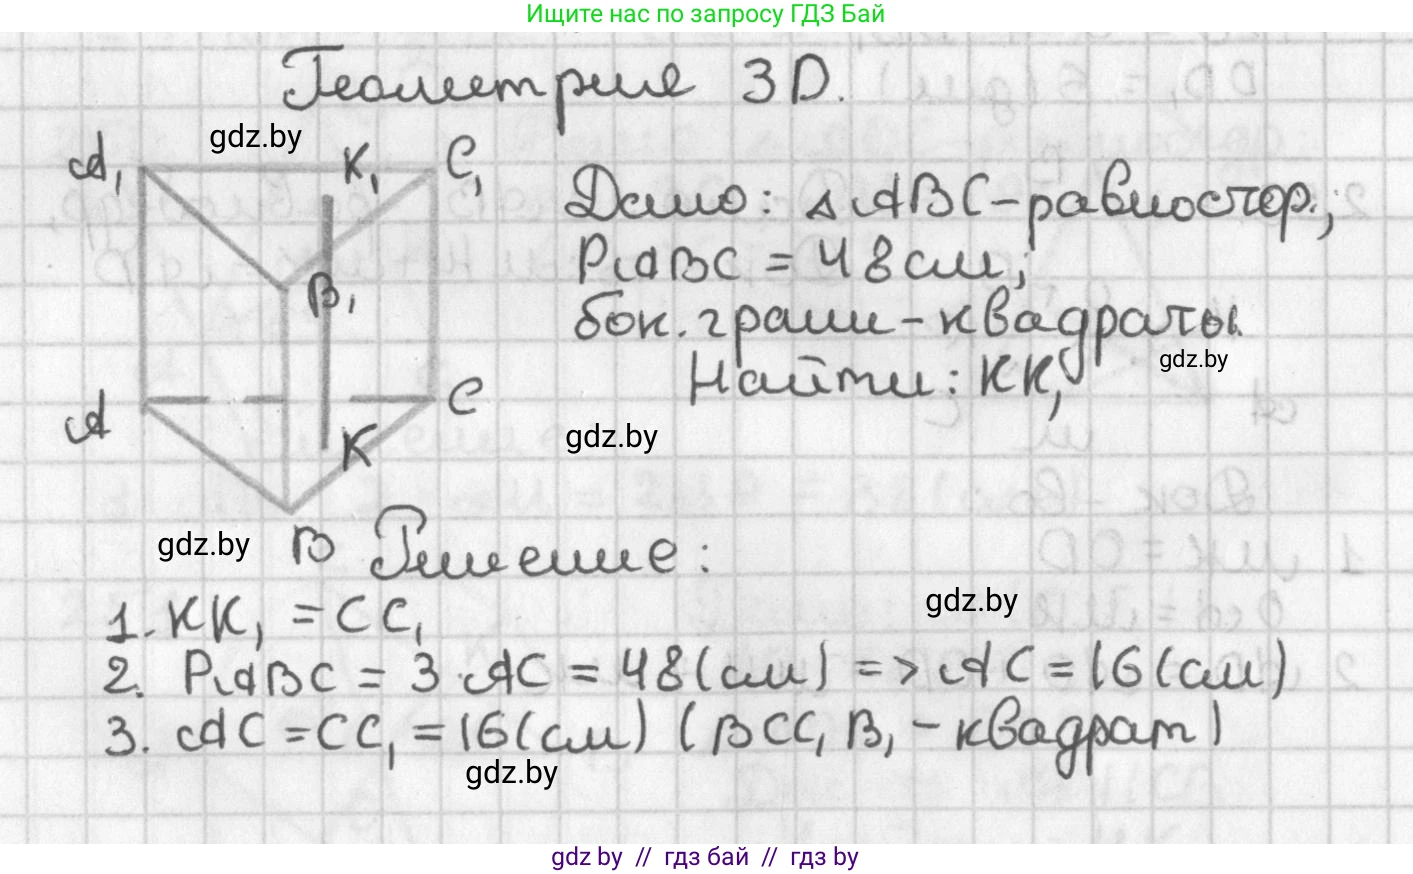 Ищите нас по запросу ГДЗ Бай
Геометрия 3D.
gdz.by
A₁ K₁ C₁
Дано: △ABC-равностор.;
PABC = 48см;
B₁
бок. грани-квадраты.
gdz.by
Найти: KK₁
A C
gdz.by
K
gdz.by
B
Решение:
gdz.by
1. KK₁ = CC₁
2. PABC = 3·AC = 48(см) => AC = 16(см)
3. AC = CC₁ = 16(см) (BCC₁B₁ - квадрат)
gdz.by
gdz by // гдз бай // гдз by